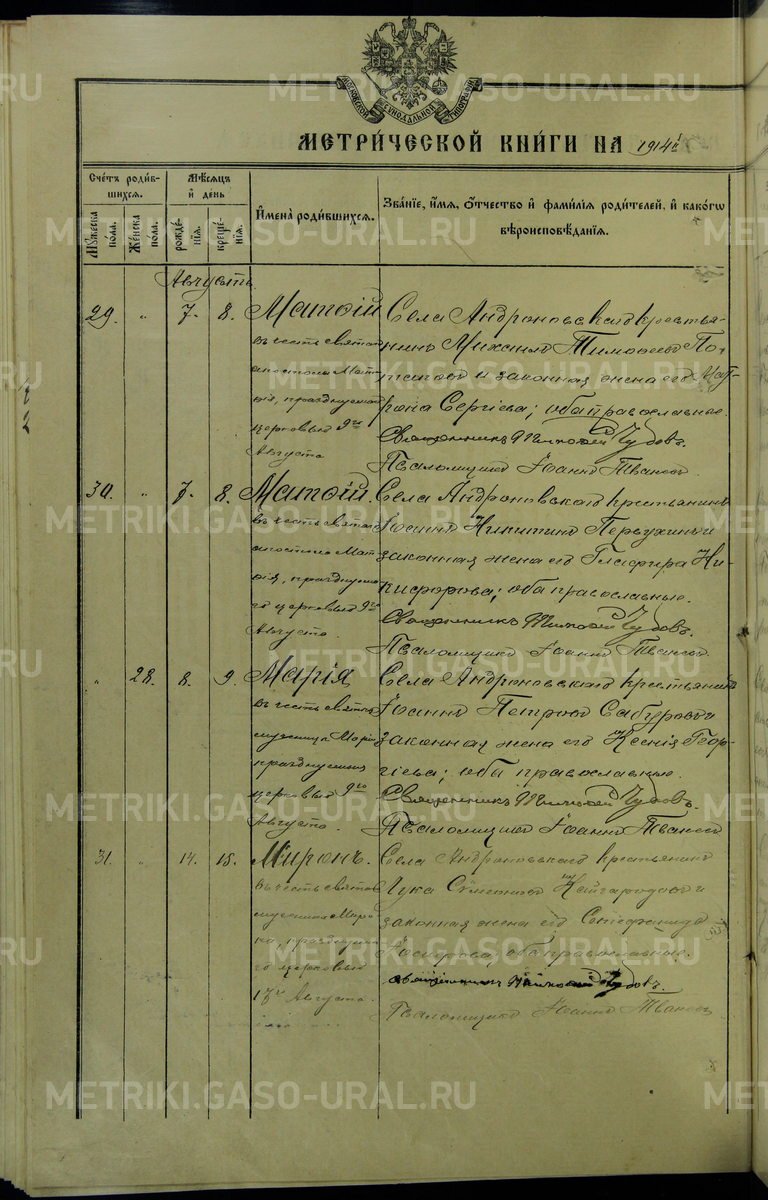 МОСКОВСКОЙ СѴНОДАЛЬНОЙ ТИПОГРАФІИ
МЕТРИ́ЧЕСКОЙ КНИ́ГИ НА 1914 г.
Сче́тъ роди́вшихся.
Му́жеска по́ла.
Же́нска по́ла.
Мѣ́сяцъ и҆ де́нь
рожде́нїѧ.
креще́нїѧ.
И҆мена̀ роди́вшихся.
Зва́нїе, и҆́мѧ, ѻ҆́тчество и҆ фами́лїѧ роди́телей, и҆ како́гѡ
вѣроисповѣ́данїѧ.
Августъ.
29. " 7. 8. Матѳій
въ честь святаго
апостола Мат-
ѳія, празднуемаго
церковью 9го
Августа
Села Андроновскаго крестья-
нинъ Михаилъ Тимоѳеевъ
и законная жена его Мат-
рона Сергіева; оба православные.
Священникъ Чудовъ.
Псаломщикъ Іоаннъ Ивановъ
30. " 7. 8. Матѳій.
въ честь святаго
апостола Мат-
ѳія, празднуемаго
церковью 9го
Августа.
Села Андроновскаго крестьянинъ
Іоаннъ Никитинъ Первухинъ и
законная жена его Глафира Ни-
кифорова; оба православные.
Священникъ Чудовъ.
Псаломщикъ Іоаннъ Ивановъ
" 28. 8. 9. Марія
въ честь святыя
мученицы Маріи
празднуемыя
церковью 9го
Августа.
Села Андроновскаго крестьянинъ
Іоаннъ Петровъ Сабуровъ и
законная жена его Ксенія Геор-
гіева; оба православные.
Священникъ Чудовъ.
Псаломщикъ Іоаннъ Ивановъ
31. " 14. 15. Миронъ.
въ честь святаго
мученика Миро-
на, празднуема-
го церковью
17го Августа.
Села Андроновскаго крестьянинъ
Лука Симеоновъ Кайгородовъ и
законная жена его Стефанида
оба православные.
Священникъ Чудовъ.
Псаломщикъ Іоаннъ Ивановъ
METRIKI.GASO-URAL.RU